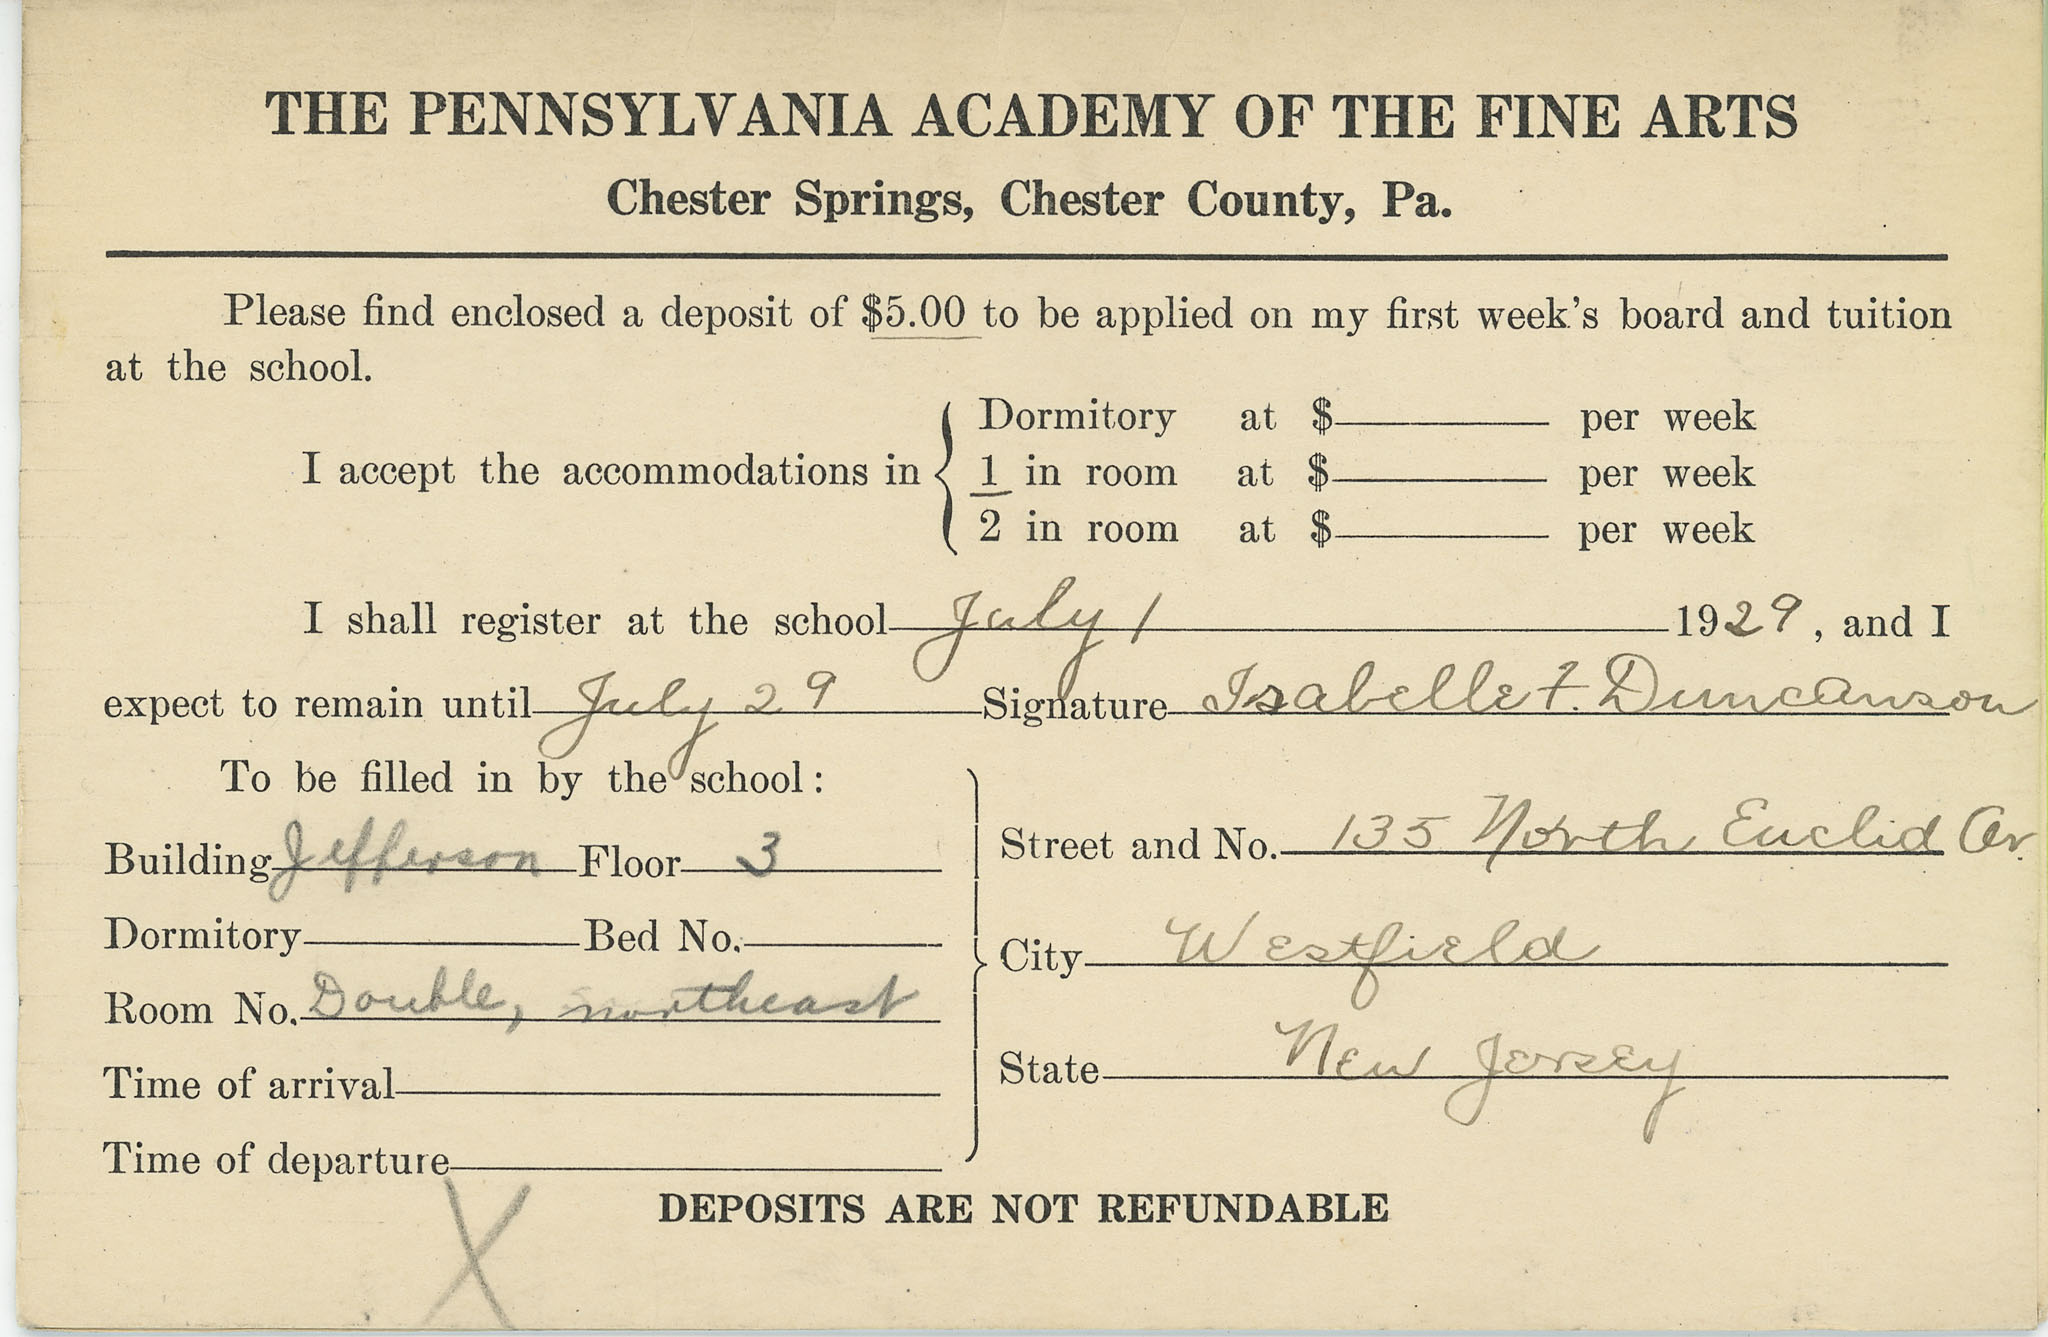 THE PENNSYLVANIA ACADEMY OF THE FINE ARTS
Chester Springs, Chester County, Pa.
Please find enclosed a deposit of $5.00 to be applied on my first week's board and tuition
at the school.
Dormitory at $ per week
I accept the accommodations in 1 in room at $ per week
2 in room at $ per week
I shall register at the school July 1 1929, and I
expect to remain until July 29 Signature Isabelle F. Duncanson
To be filled in by the school:
Building Jefferson Floor 3
Street and No. 135 North Euclid Av.
Dormitory Bed No.
City Westfield
Room No. Double, northeast
State New Jersey
Time of arrival
Time of departure
X
DEPOSITS ARE NOT REFUNDABLE